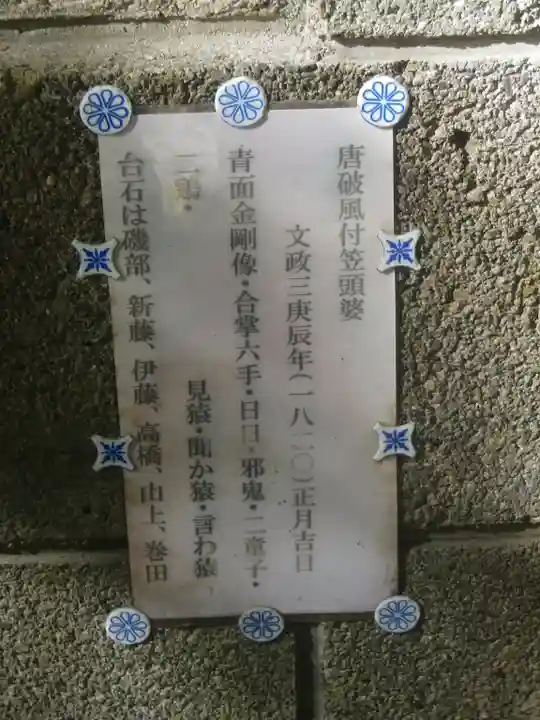 唐破風付笠頭婆
文政三庚辰年(一八二〇)正月吉日
青面金剛像・合掌六手・日月・邪鬼・二童子・
二鶏・
見猿・聞か猿・言わ猿
台石は磯部、新藤、伊藤、高橋、山上、巻田